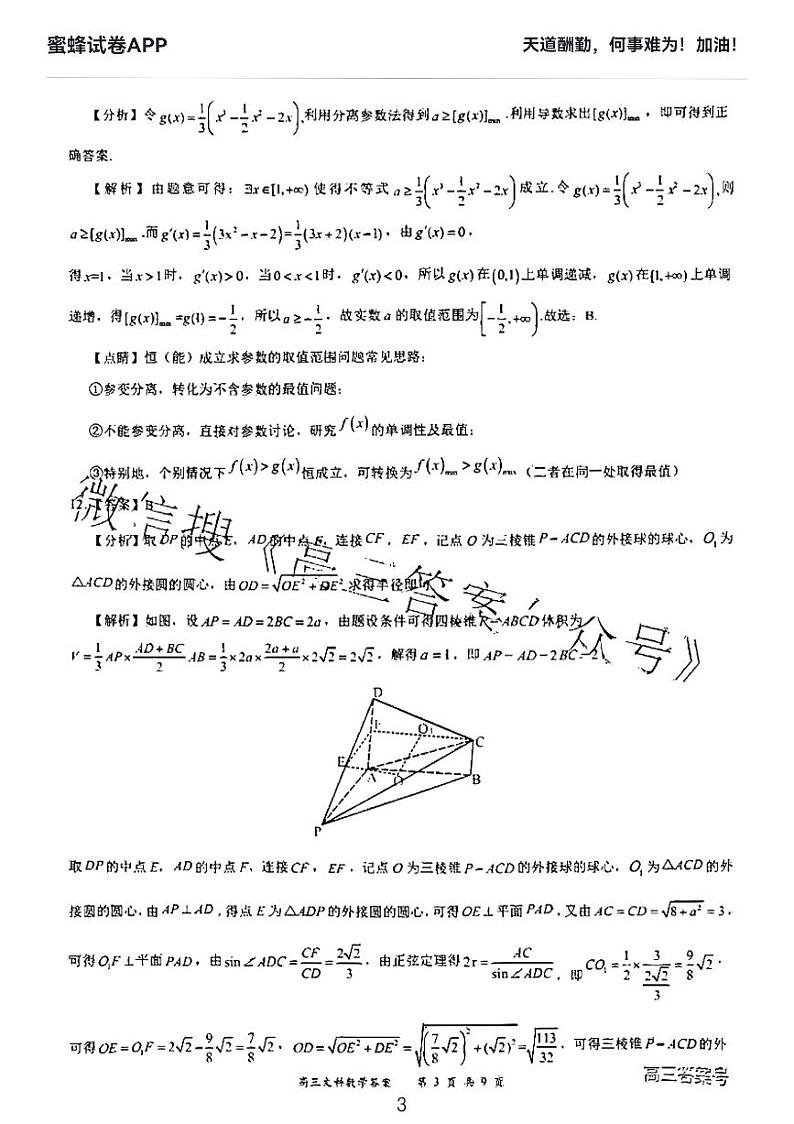 蜜蜂试卷APP
天道酬勤，何事难为！加油！
【分析】令 g(x)=1/3(x³-1/2x²-2x),利用分离参数法得到 a≥[g(x)]min .利用导数求出[g(x)]min ，即可得到正
确答案.
【解析】由题意可得：∃x∈[1,+∞) 使得不等式 a≥1/3(x³-1/2x²-2x)成立.令 g(x)=1/3(x³-1/2x²-2x),则
a≥[g(x)]min.而 g′(x)=1/3(3x²-x-2)=1/3(3x+2)(x-1)，由 g′(x)=0，
得x=1，当 x>1时，g′(x)>0，当 0<x<1时，g′(x)<0，所以 g(x) 在(0,1)上单调递减，g(x) 在[1,+∞) 上单调
递增，得[g(x)]min=g(1)=-1/2，所以 a≥-1/2，故实数 a 的取值范围为[-1/2,+∞).故选：B.
【点睛】恒（能）成立求参数的取值范围问题常见思路：
①参变分离，转化为不含参数的最值问题；
②不能参变分离，直接对参数讨论，研究 f(x) 的单调性及最值；
③特别地，个别情况下 f(x)>g(x) 恒成立，可转换为 f(x)min>g(x)max（二者在同一处取得最值）
12.【答案】B
【分析】取 DP 的中点 E，AD 的中点 F，连接 CF，EF，记点 O 为三棱锥 P-ACD 的外接球的球心，O₁ 为
△ACD 的外接圆的圆心，由 OD=√(OE²+DE²) 求得半径即可.
【解析】如图，设 AP=AD=2BC=2a，由题设条件可得四棱锥 P-ABCD 体积为
V=1/3AP×(AD+BC)/2 AB=1/3×2a×(2a+a)/2×2√2=2√2，解得 a=1，即 AP-AD-2BC-2，
微信搜《高三答案公众号》
D
F
O₁
C
E
A
O
B
P
取 DP 的中点 E，AD 的中点 F，连接 CF，EF，记点 O 为三棱锥 P-ACD 的外接球的球心，O₁ 为△ACD 的外
接圆的圆心，由 AP⊥AD，得点 E 为△ADP 的外接圆的圆心，可得 OE⊥平面 PAD，又由 AC=CD=√(8+a²)=3，
可得 O₁F⊥平面 PAD，由 sin∠ADC=CF/CD=2√2/3，由正弦定理得 2r=AC/sin∠ADC，即 CO₁=1/2×3/(2√2/3)=9/8√2.
可得 OE=O₁F=2√2-9/8√2=7/8√2，OD=√(OE²+DE²)=√((7/8√2)²+(√2)²)=√(113/32)，可得三棱锥 P-ACD 的外
高三文科数学答案 第 3 页 共 9 页
高三答案号
3